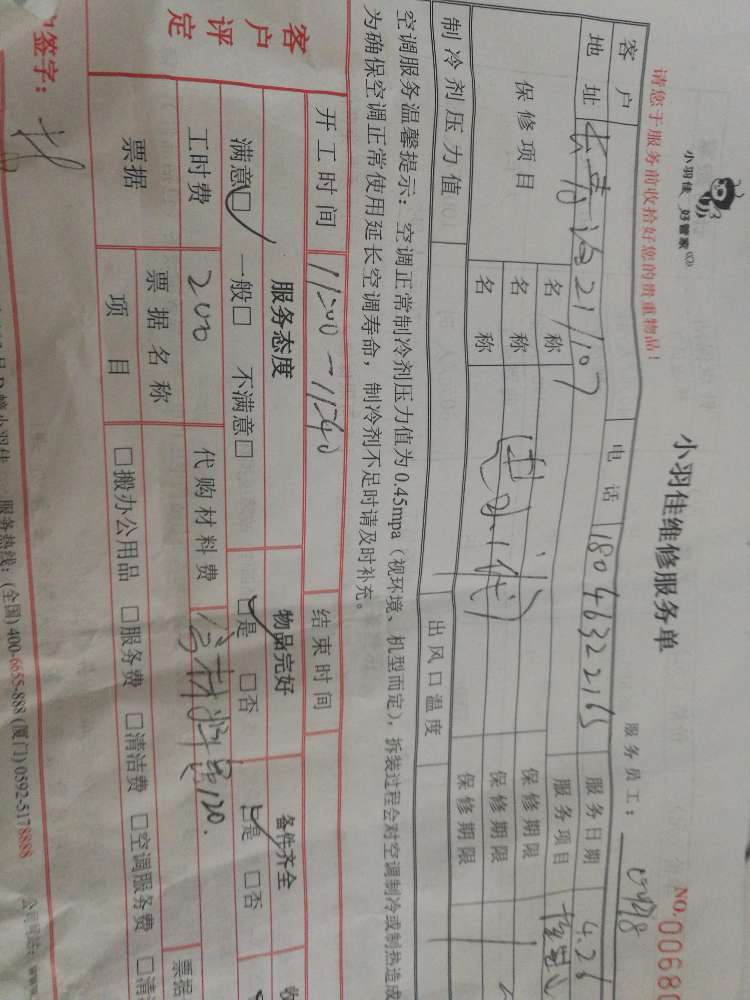 小羽佳 好管家
小羽佳维修服务单
NO.0068
请您于服务前收拾好您的贵重物品!
服务员工:
客户
电话 18046322165
服务日期 4.26
地址 21/107
服务项目
保修项目
名称
保修期限
名称
保修期限
名称
保修期限
制冷剂压力值
出风口温度
空调服务温馨提示:空调正常制冷剂压力值为0.45mpa(视环境、机型而定),拆装过程会对空调制冷或制热造成
为确保空调正常使用延长空调寿命,制冷剂不足时请及时补充。
开工时间 11:00-11:40
结束时间
客户评定
服务态度
物品完好
备件齐全
收
满意□ 一般□ 不满意□
□是 □否
□是 □否
工时费 200
代购材料费 含材料费120.
票据
票据名称
票据
项目
□搬办公用品 □服务费 □清洁费 □空调服务费 □清
签字:
服务热线:(全国)400-6655-888(厦门)0592-5178888
公司网站:www.